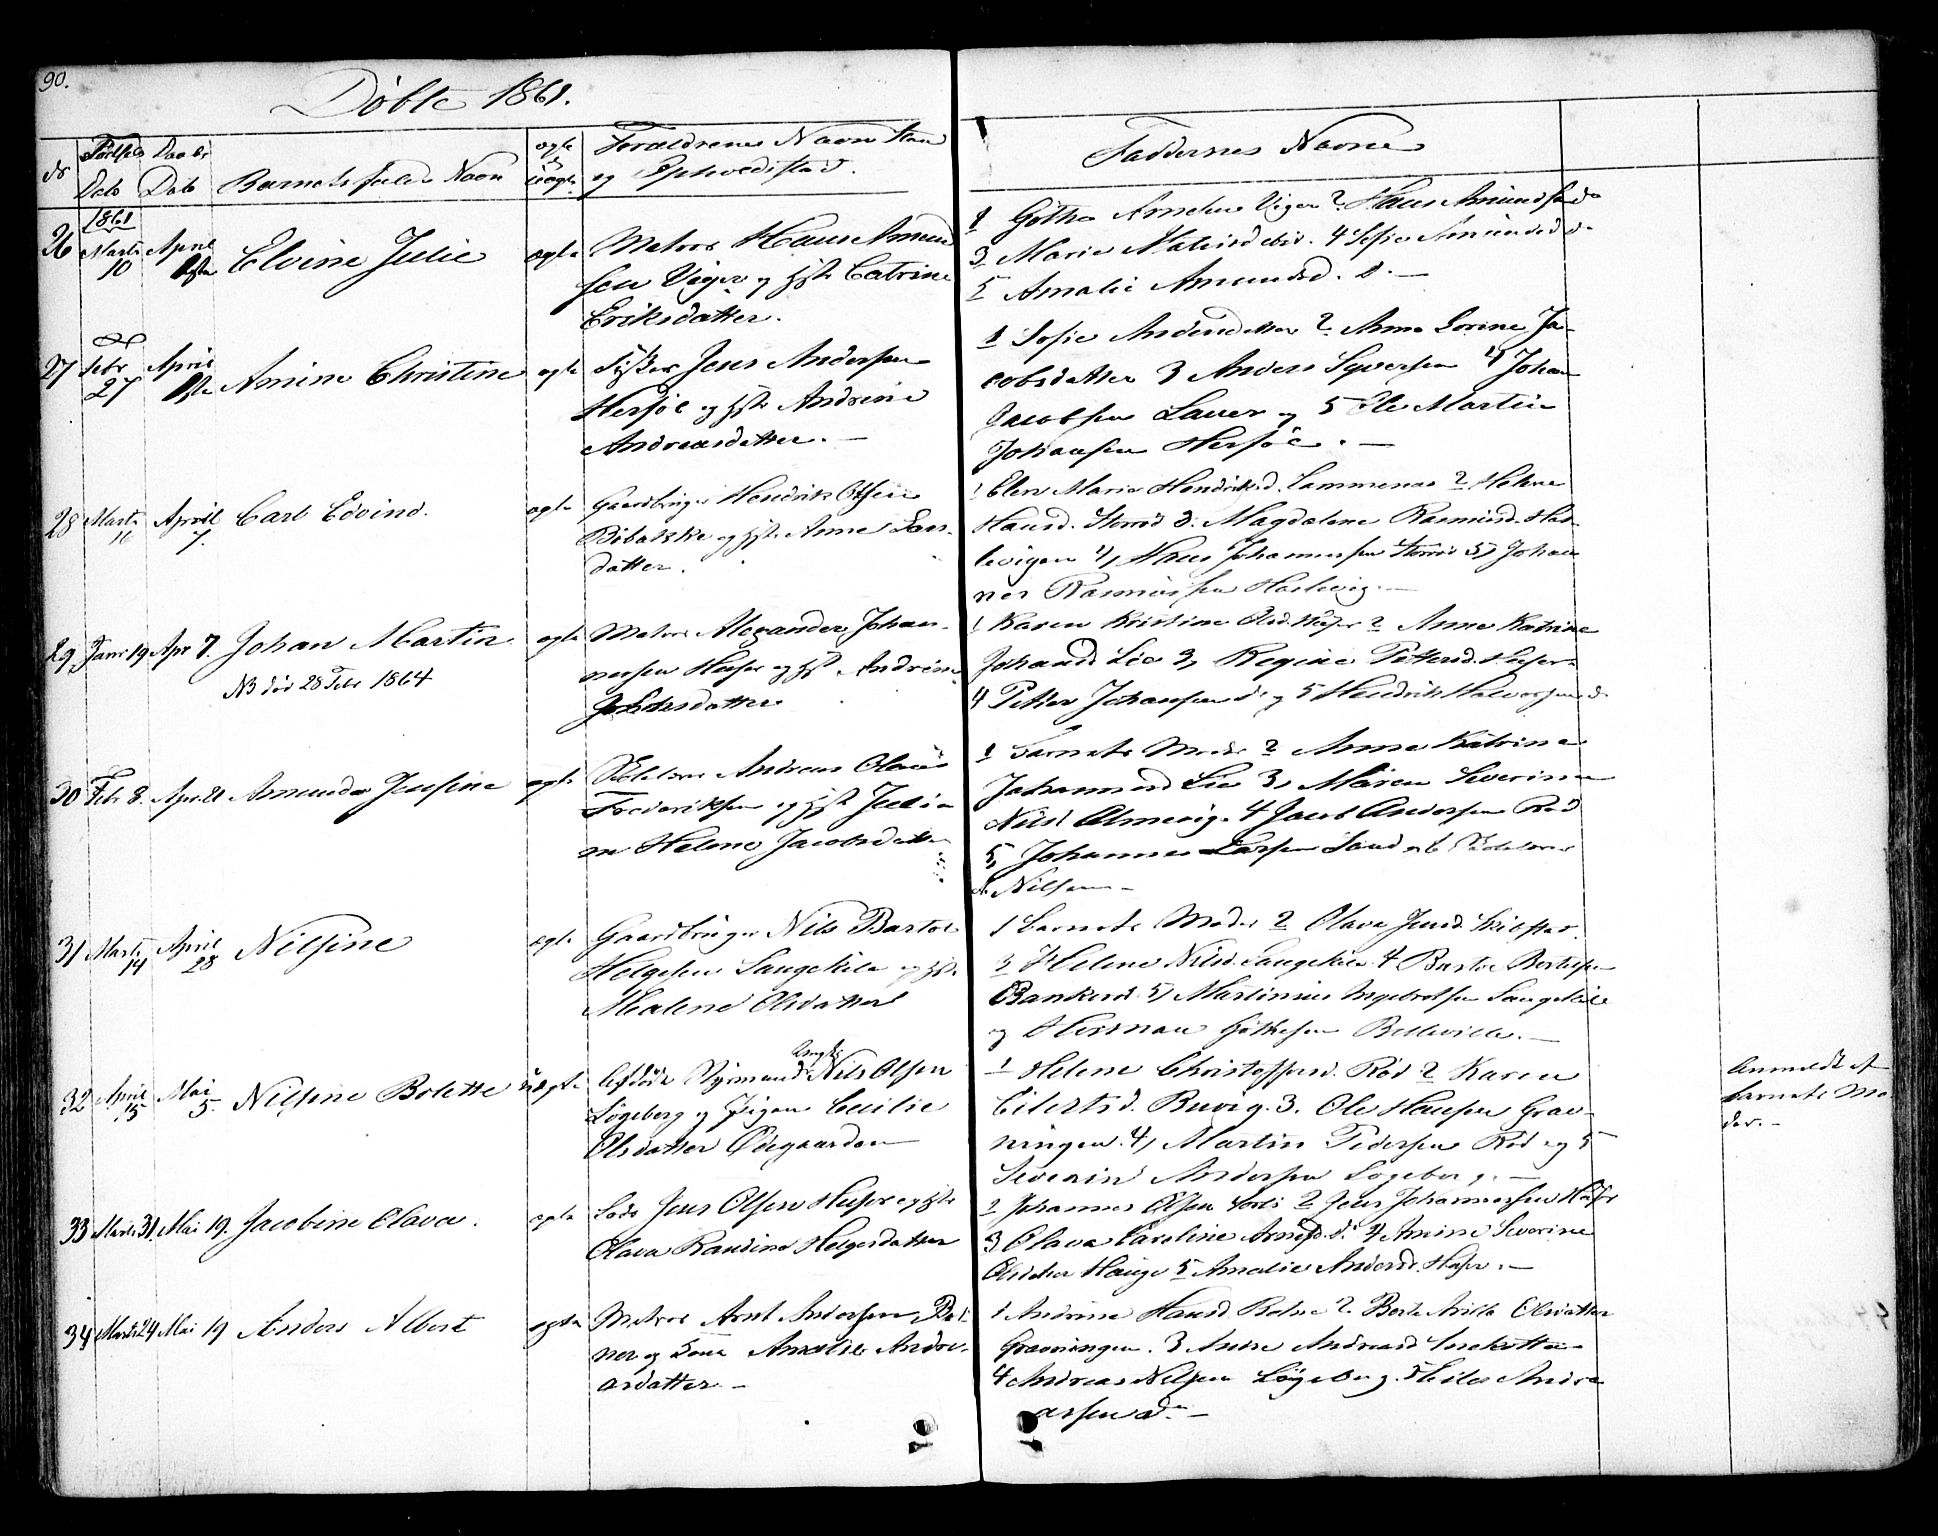 90.
Døbte 1861.
Nr Fødsels Dato Daabs Dato Barnets fulde Navn ægte el uægte Forældrenes Navn Stan og Opholdsstæd.
Faddernes Navne
1861
26 Marts 10 April 1ste Elvine Julie ægte Matros Hans Amund
sen Viger og hst Catrine
Eriksdatter.
1 Gothe Viger 2 Hans Amundsen do
3 Marie 4 Sofie Amundsd do
5 Amalie Amundsd. d. —
27 Febr 27 April 1ste Amine Christine ægte Fisker Jens Andersen
Herføl og hst Andrine
Andreasdatter. —
1 Sofie Andersdatter 2 Anne Lorine Ja-
cobsdatter 3 Anders Syversen 4 Johan
Jacobsen Lauer og 5 Ole Martin
Johansen Herføl. —
28 Marts 11 April 7. Carl Edvind. ægte Gaardbruger Hendrik Olsen
Bibalkke og hst. Anne Lars-
datter.
1 Elen Maria Hendriksd. 2 Helene
Hansd. Storrød 3. Magdalene Rasmusd. Has-
levigen 4, Hans Johannessen Storrød 5, Johan
nes Rasmussen Haslevig. —
29 Janr 19 Apr 7. Johan Martin ægte Matros Alexander Johan-
nessen Huser og hst Andrine
Jakobsdatter
NB død 28 Febr 1864
1 Karen Kristine Olsd. Huser 2 Anne Katrine
Johansd Lie 3, Regine Pettersd. Huser
4 Petter Johansen d. og 5 Hendrik Halvorsen d.
30 Febr 8. Apr. 21 Amunda Josefine ægte Andreas Olaus
Frederiksen og hst Julia
ne Helene Jacobsdatter
1 Barnets Moder 2 Anne Katrine
Johannesd Lie 3, Maren Severine
Nilsd Olmevig. 4 Jacob Andersen Rød
5, Johannes Larsen Sand
Nilsen —
31 Marts 14 April 28 Nilsine ægte Gaardbruger Nils Bastol
Helgesen Langekile og hst.
Malene Olsdatter
1 Barnets Moder 2 Olava Jensd.
3 Helene Nilsd. Langekile 4 Bastol Bertelsen
Bankerød 5, Martinius Ingebretsen Langekile
og Herman Gjøthesen Belleville. —
32 April 15 Mai 5. Nilsine Bolette uægte Afdøde Styrmand Ungk. Nils Olsen
Løgeberg og Pigen Cecilie
Olsdatter Ødegaarden
1 Helene Christoffersd. Rød 2 Karen
Eilertsd. Buvig. 3. Ole Hansen Grav-
ningen. 4, Martin Pedersen Rød og 5
Severin Andersen Løgeberg. —
Anmeldt af
Barnets Mo
der. —
33 Marts 31. Mai 19. Jacobine Olava. ægte Lods Jens Olsen Huser og hst
Olava Randine Helgesdatter
1 Johannes Olsen 2 Jens Johannessen Huser
3 Olava Caroline Arnesd. d. 4 Amine Severine
Olsdatter Hauge 5 Amalie Andersd. Huser. —
34 Marts 24 Mai 19 Anders Albert ægte Matros Arnt Andersen
og Amalie Andre-
asdatter —
1 Andrine Hansd 2 Berte Olsdatter
Gravningen. 3 Anne Andreasd
4 Andreas Nilsen Løgeberg. 5 Andre
assen do —